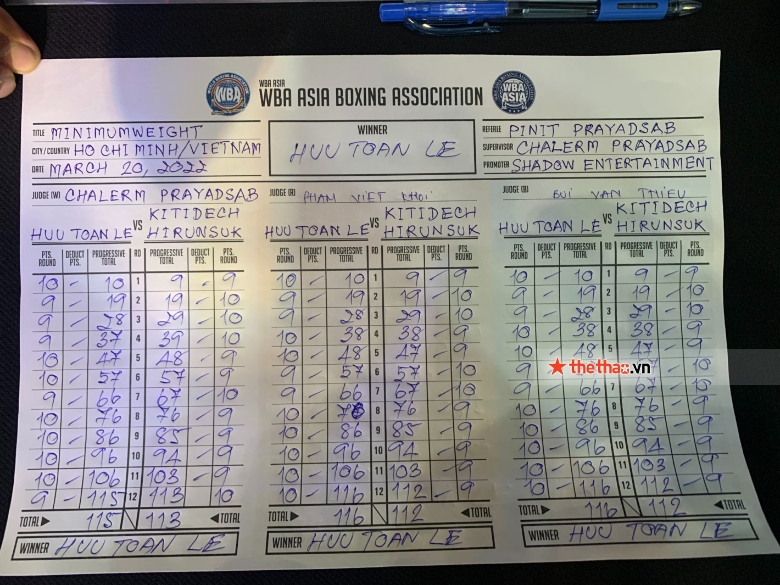 WBA ASIA
WBA ASIA BOXING ASSOCIATION
WBA
WBA ASIA
TITLE MINIMUMWEIGHT
CITY / COUNTRY HO CHI MINH/VIETNAM
DATE MARCH 20, 2022
WINNER
HUU TOAN LE
REFEREE PINIT PRAYADSAB
SUPERVISOR CHALERM PRAYADSAB
PROMOTER SHADOW ENTERTAINMENT
JUDGE (W) CHALERM PRAYADSAB
HUU TOAN LE VS KITIDECH HIRUNSUK
PTS. ROUND DEDUCT PTS. PROGRESSIVE TOTAL RD PROGRESSIVE TOTAL DEDUCT PTS. PTS. ROUND
10 - 10 1 9 - 9
9 - 19 2 19 - 10
9 - 28 3 29 - 10
9 - 37 4 39 - 10
10 - 47 5 48 - 9
10 - 57 6 57 - 9
9 - 66 7 67 - 10
10 - 76 8 76 - 9
10 - 86 9 85 - 9
10 - 96 10 94 - 9
10 - 106 11 103 - 9
9 - 115 12 113 10
TOTAL 115 113 TOTAL
WINNER HUU TOAN LE
JUDGE (R) PHAM VIET KHOI
HUU TOAN LE VS KITIDECH HIRUNSUK
PTS. ROUND DEDUCT PTS. PROGRESSIVE TOTAL RD PROGRESSIVE TOTAL DEDUCT PTS. PTS. ROUND
10 - 10 1 9 - 9
9 - 19 2 19 - 10
9 - 28 3 29 - 10
10 - 38 4 38 - 9
10 - 48 5 47 - 9
9 - 57 6 57 - 10
9 - 66 7 67 - 10
10 - 76 8 76 - 9
10 - 86 9 85 - 9
10 - 96 10 94 - 9
10 - 106 11 103 - 9
10 - 116 12 112 - 9
TOTAL 116 112 TOTAL
WINNER HUU TOAN LE
JUDGE (B) BUI VAN THIEU
HUU TOAN LE VS KITIDECH HIRUNSUK
PTS. ROUND DEDUCT PTS. PROGRESSIVE TOTAL RD PROGRESSIVE TOTAL DEDUCT PTS. PTS. ROUND
10 - 10 1 9 - 9
9 - 19 2 19 - 10
9 - 28 3 29 - 10
10 - 38 4 38 - 9
10 - 48 5 47 - 9
9 - 10
9 - 66 7 67 - 10
10 - 76 8 76 - 9
10 - 86 9 85 - 9
10 - 96 10 94 - 9
10 - 106 11 103 - 9
10 - 116 12 112 - 9
TOTAL 116 112 TOTAL
WINNER HUU TOAN LE
thethao.vn